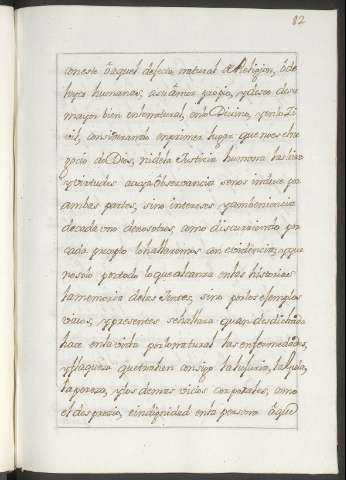 82
con este ô aquel defecto natural de Religion, ô de
leyes humanas, a su amor propio, y deseo de su
mayor bien en lo natural, en lo Divino, y en lo Ci-
vil, considerando en primer lugar que no es el ne-
gocio de Dios, ni de la Justicia humana las leies
y virtudes a cuya observancia se nos induce por
ambas partes, sino intereses y combeniencia
de cada uno de nosotros, como discurriendo por
cada precepto lo hallaremos con evidencia; y que
no solo por todo lo que alcanza en las historias
la memoria de las Gentes, sino por los exemplos
vivos, y presentes se hallara quan desdichada
hace en la vida por lo natural las enfermedades,
y flaqueza que trahen consigo la luxuria, la gula,
la pereza, y los demas vicios corporales, como
el desprecio, e indignidad en la persona ô que